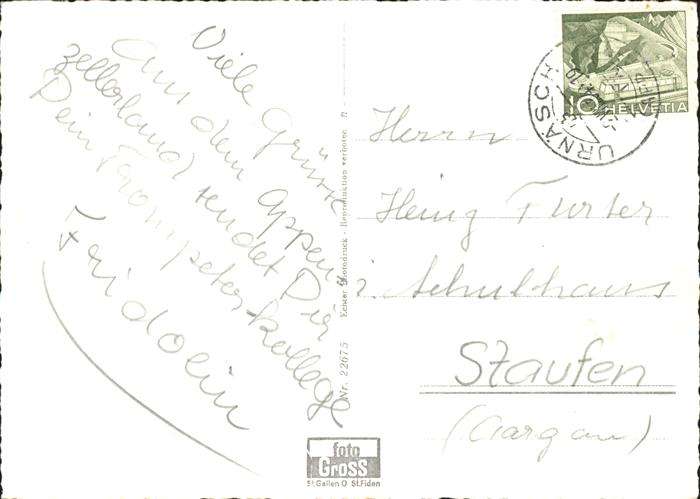 Viele Grüsse
aus dem Appen-
zellerland sendet Dir
Dein Trompeterkollege
Fridolin
Nr. 22675 Echter Photodruck - Reproduktion verboten.
foto
Gross
St.Gallen O St.Fiden
10 HELVETIA
URNÄSCH
Herrn
Heinz Furter
Schulhaus
Staufen
(Aargau)